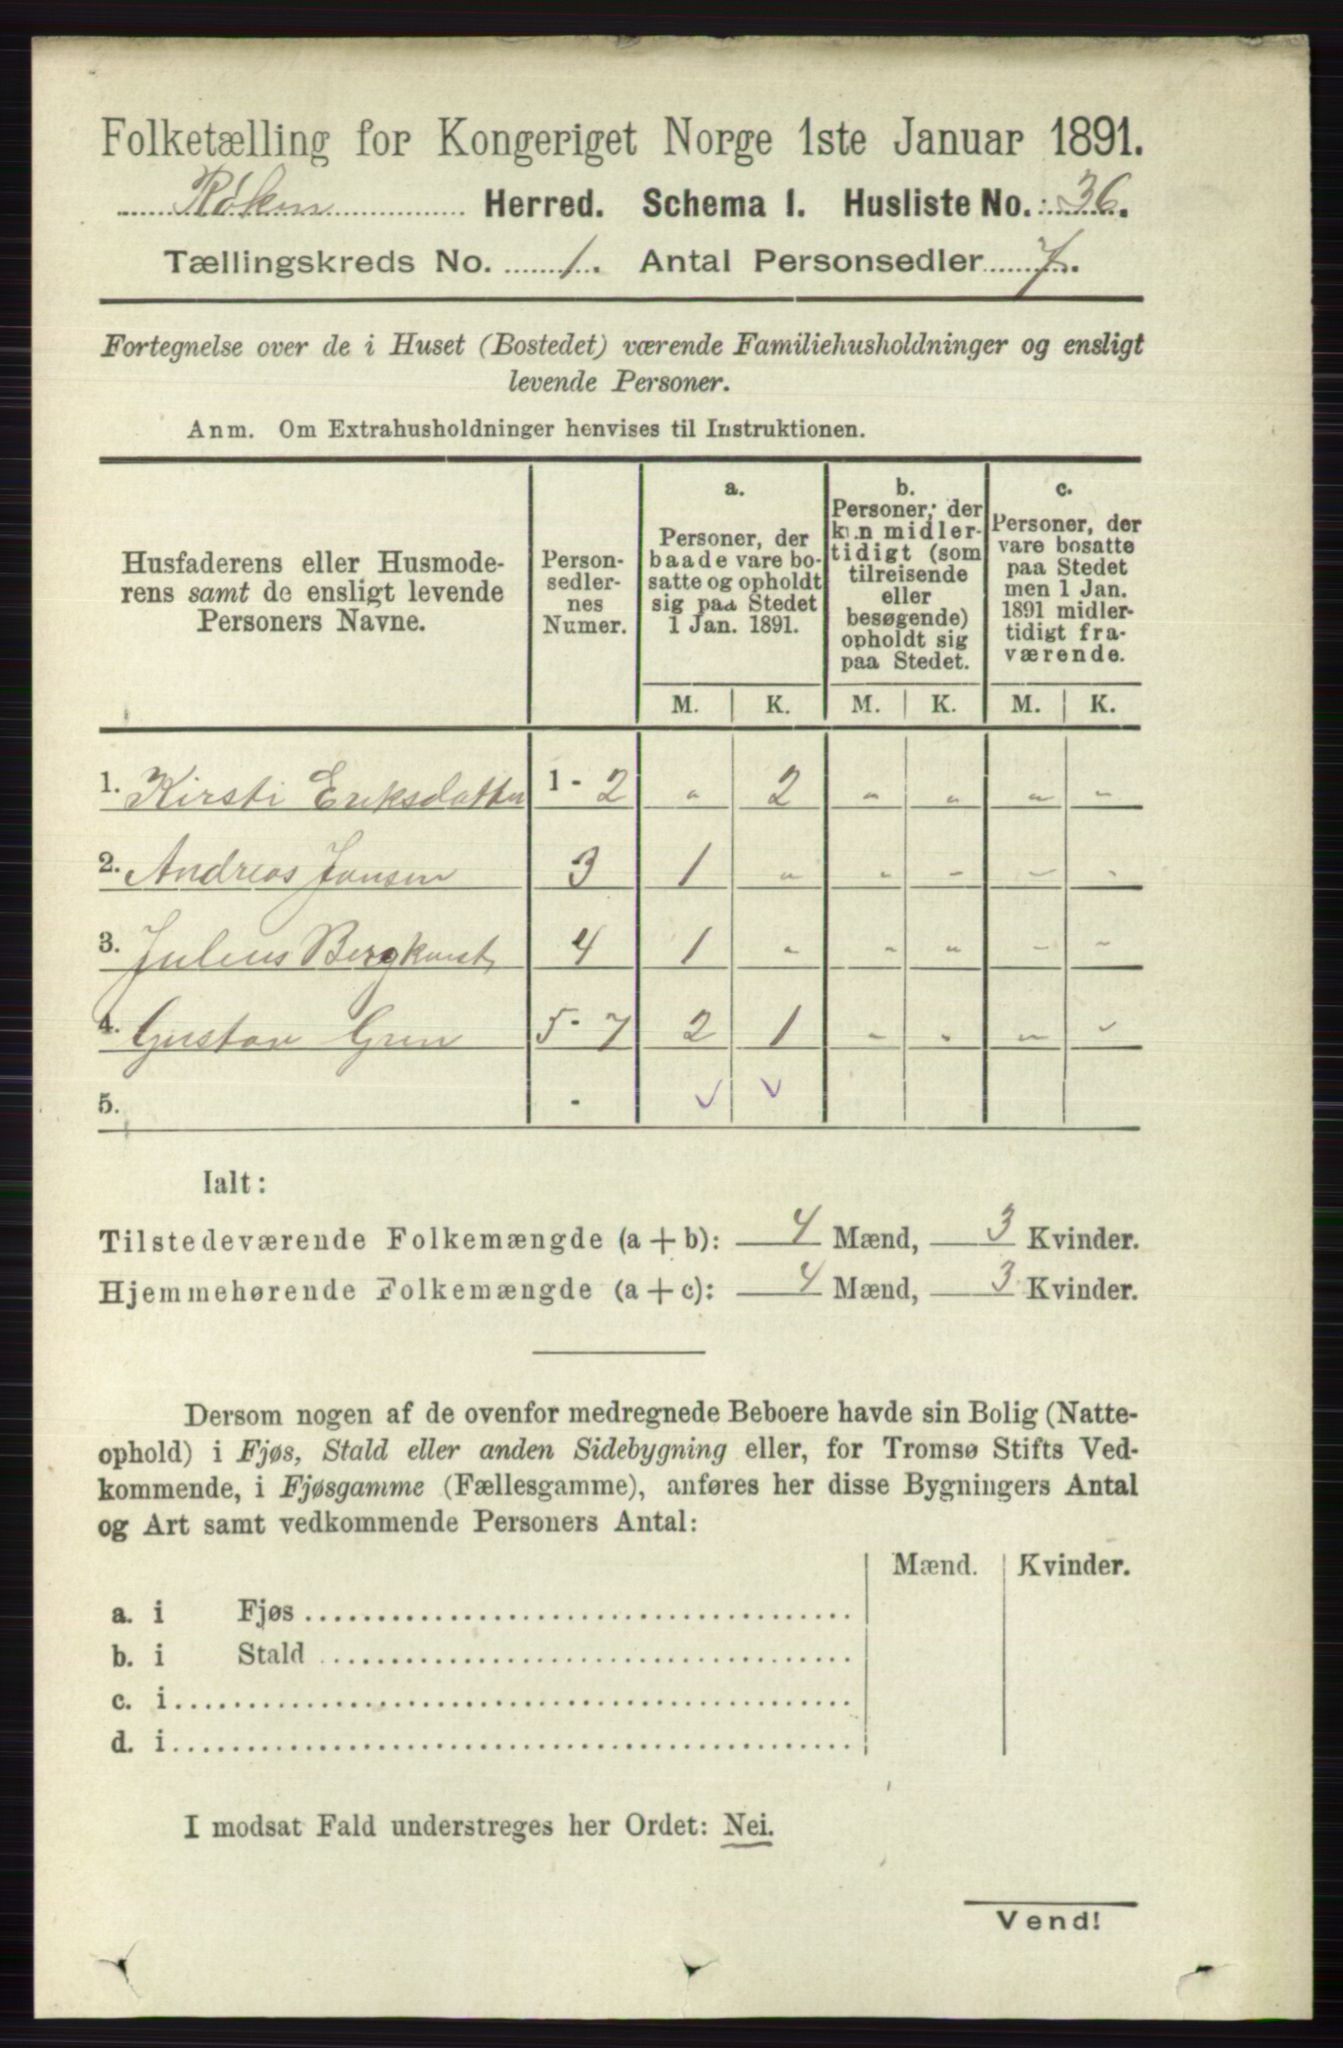 Folketælling for Kongeriget Norge 1ste Januar 1891.
Røken Herred. Schema I. Husliste No. 36.
Tællingskreds No. 1. Antal Personsedler 7.
Fortegnelse over de i Huset (Bostedet) værende Familiehusholdninger og ensligt
levende Personer.
Anm. Om Extrahusholdninger henvises til Instruktionen.
Husfaderens eller Husmode-
rens samt de ensligt levende
Personers Navne.
Person-
sedler-
nes
Numer.
a.
Personer, der
baade vare bo-
satte og opholdt
sig paa Stedet
1 Jan. 1891.
b.
Personer, der
kun midler-
tidigt (som
tilreisende
eller
besøgende)
opholdt sig
paa Stedet.
c.
Personer, der
vare bosatte
paa Stedet
men 1 Jan.
1891 midler-
tidigt fra-
værende.
M. K. M. K. M. K.
1. Kirsti Eriksdatter 1 - 2 " 2 " " " "
2. Andreas Jansen 3 1 " " " " "
3. Julius Bergkvist 4 1 " " " " "
4. Gustav Gren 5 - 7 2 1 " " " "
5. -
Ialt:
Tilstedeværende Folkemængde (a + b): 4 Mænd, 3 Kvinder.
Hjemmehørende Folkemængde (a + c): 4 Mænd, 3 Kvinder.
Dersom nogen af de ovenfor medregnede Beboere havde sin Bolig (Natte-
ophold) i Fjøs, Stald eller anden Sidebygning eller, for Tromsø Stifts Ved-
kommende, i Fjøsgamme (Fællesgamme), anføres her disse Bygningers Antal
og Art samt vedkommende Personers Antal:
Mænd. Kvinder.
a. i Fjøs
b. i Stald
c. i
d. i
I modsat Fald understreges her Ordet: Nei.
Vend!